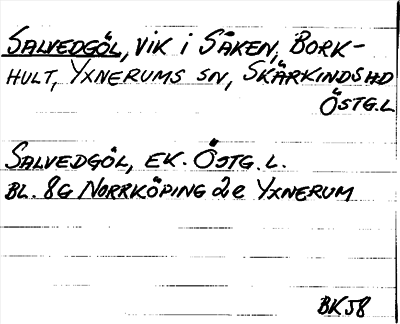 SALVEDGÖL, VIK I SÅKEN, BORK-
HULT, YXNERUMS SN, SKÄRKINDS HD
ÖSTG.L
SALVEDGÖL, EK. ÖSTG. L.
BL. 8G NORRKÖPING 2e YXNERUM
BK58